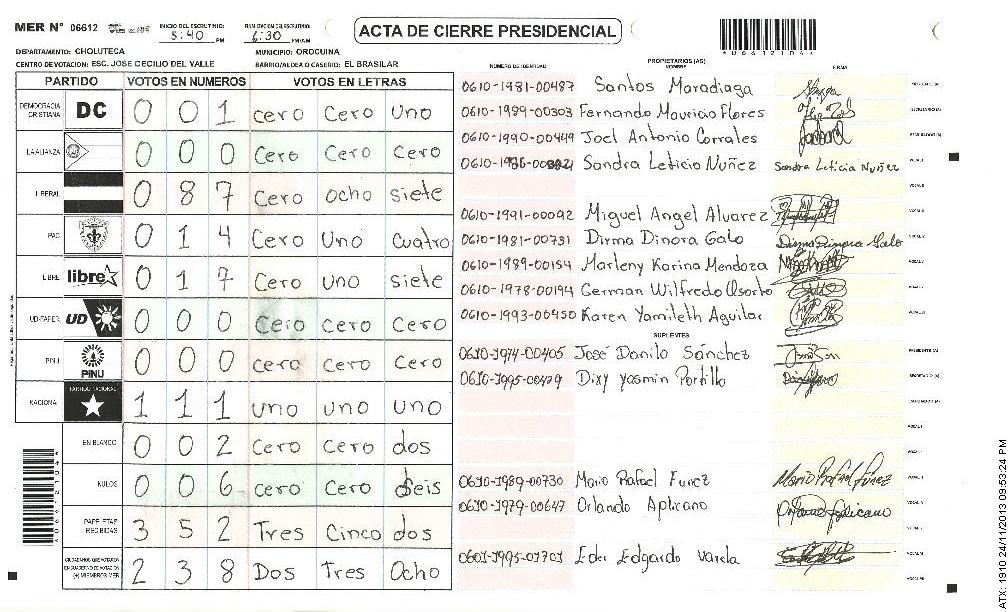 MER N° 06612 INICIO DEL ESCRUTINIO: 5:40 PM FINALIZACION DEL ESCRUTINIO: 6:30 PM/AM
ACTA DE CIERRE PRESIDENCIAL
*06612104*
DEPARTAMENTO: CHOLUTECA MUNICIPIO: OROCUINA
CENTRO DE VOTACION: ESC. JOSE CECILIO DEL VALLE BARRIO/ALDEA O CASERIO: EL BRASILAR
NUMERO DE IDENTIDAD PROPIETARIOS (AS) NOMBRE FIRMA
PARTIDO VOTOS EN NUMEROS VOTOS EN LETRAS
DEMOCRACIA CRISTIANA DC 0 0 1 cero Cero Uno
LA ALIANZA 0 0 0 Cero Cero Cero
LIBERAL 0 8 7 Cero ocho siete
PAC 0 1 4 Cero Uno cuatro
LIBRE libre 0 1 7 Cero uno siete
UD-FAPER UD 0 0 0 Cero cero Cero
PINU PINU 0 0 0 cero cero Cero
NACIONAL PARTIDO NACIONAL 1 1 1 uno uno uno
EN BLANCO 0 0 2 Cero Cero dos
NULOS 0 0 6 cero Cero Seis
PAPELETAS RECIBIDAS 3 5 2 Tres Cinco dos
CIUDADANOS QUE VOTARON EN CUADERNO DE VOTACION (+) MIEMBROS MER 2 3 8 Dos Tres Ocho
0610-1981-00487 Santos Maradiaga PRESIDENTE (A)
0610-1989-00303 Fernando Mauricio Flores SECRETARIO (A)
0610-1990-00449 Joel Antonio Corrales ESCRUTADOR (A)
0610-1986- Sandra Leticio Nuñez Sandra Leticia Nuñez VOCAL I
VOCAL II
0610-1991-00092 Miguel Angel Alvarez
0610-1981-00731 Dirma Dinora Galo Dirma Dinora Galo
0610-1989-00154 Marleny Karina Mendoza
0610-1978-00194 German Wilfredo Osorto
0610-1993-00450 Karen Yamileth Aguilar
SUPLENTES
0610-1974-00405 José Danilo Sánchez PRESIDENTE (A)
0610-1995-00479 Dixy Yasmin Portillo SECRETARIO (A)
ESCRUTADOR (A)
VOCAL I
0610-1989-00730 Mario Rafael Funez Mario Rafael Funez
0610-1979-00647 Orlando Aplicano
0601-1995-01701 Eder Edgardo Varela
ATX: 1910 24/11/2013 09:53:24 PM